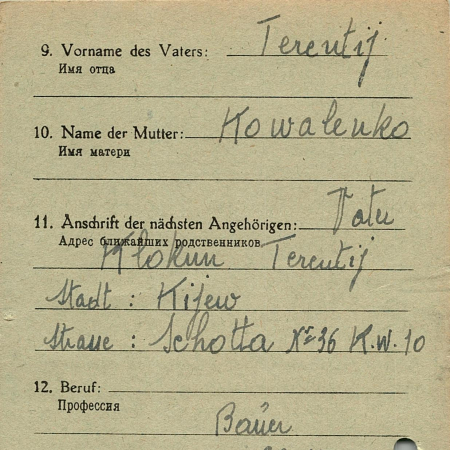 9. Vorname des Vaters: Terentij
Имя отца
10. Name der Mutter: Kowalenko
Имя матери
11. Anschrift der nächsten Angehörigen: Vater
Адрес ближайших родственников
Klokun Terentij
Stadt : Kijew
Strasse : Schotta Nr 36 K.W. 10
12. Beruf:
Профессия
Bauer